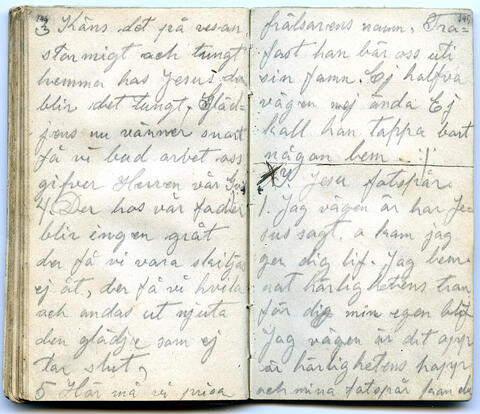 3 Käns det på resan
stormigt och tungt
hemma hos Jesus da
blir det tungt. Gläd-
jens nu vänner snart
få vi bud arvet oss
gifver Herren vår Gu
4. Der hos vår fader
blir ingen gråt
der få vi vara skiljas
ej åt, der få vi hvila
och andas ut njuta
den glädje som ej
tar slut,
5 Här må vi prisa
frälsarens namn. Tro-
fast han bär oss uti
sin famn. Ej halfva
vägen nej ända Ej
skall han tappa bort
någon hem
Jesu fotspår
1. Jag vägen är har Je-
sus sagt. o kom jag
ger dig lif. Jag
härlighetens
för dig min egen
Jag vägen är dit opp
är härlighetens hopp
och mina fotspår